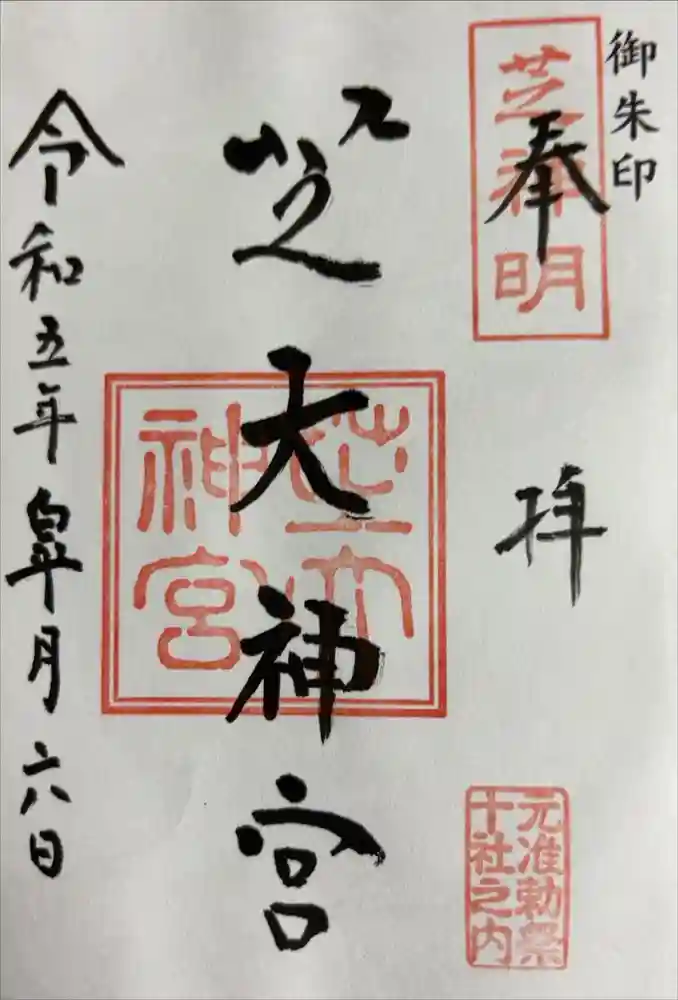 御朱印
奉拝
芝神明
元准勅祭
十社之内
芝大神宮
芝大
神宮
令和五年皐月六日